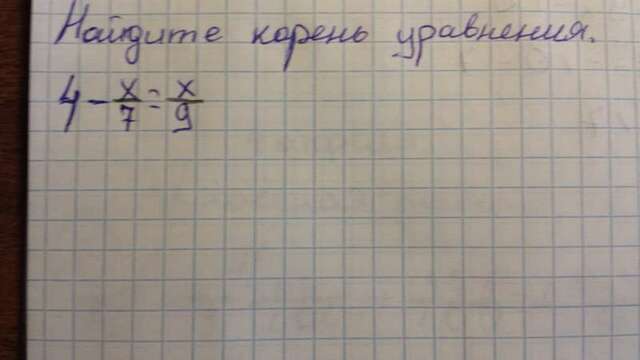 Найдите корень уравнения.
4 - x/7 = x/9